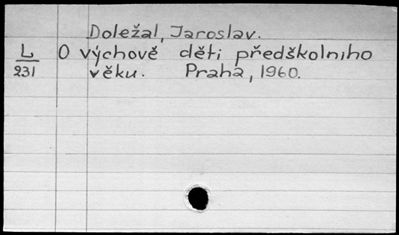 Doležal, Jaroslav.
L O výchově děti předškolního
231 věku. Praha, 1960.